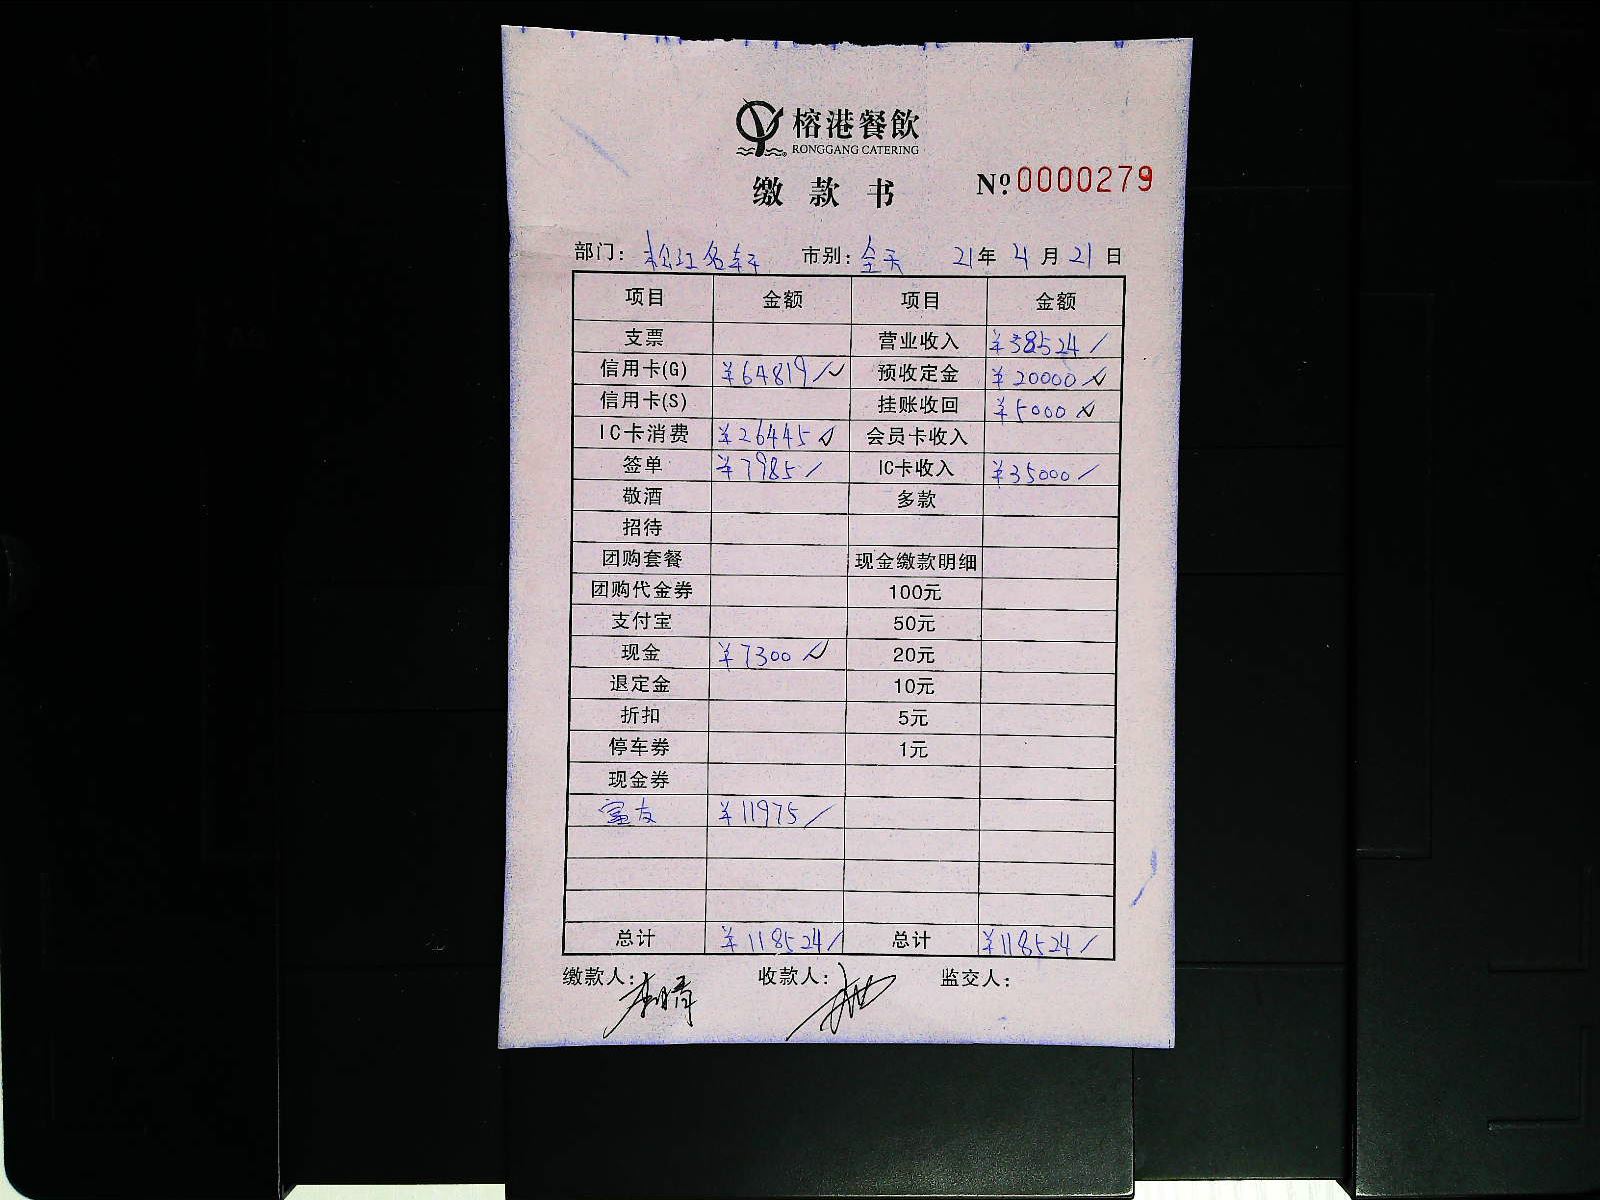 榕港餐飲
RONGGANG CATERING
缴款书 Nº 0000279
部门: 松江名轩 市别: 全天 21年 4月 21日
项目 金额 项目 金额
支票 营业收入 ¥58524
信用卡(G) ¥64819 预收定金 ¥20000
信用卡(S) 挂账收回 ¥5000
IC卡消费 ¥26445 会员卡收入
签单 ¥7985 IC卡收入 ¥35000
敬酒 多款
招待
团购套餐 现金缴款明细
团购代金券 100元
支付宝 50元
现金 ¥7300 20元
退定金 10元
折扣 5元
停车券 1元
现金券
富友 ¥11975
总计 ¥118524 总计 ¥118524
缴款人: 李晴 收款人: 监交人: